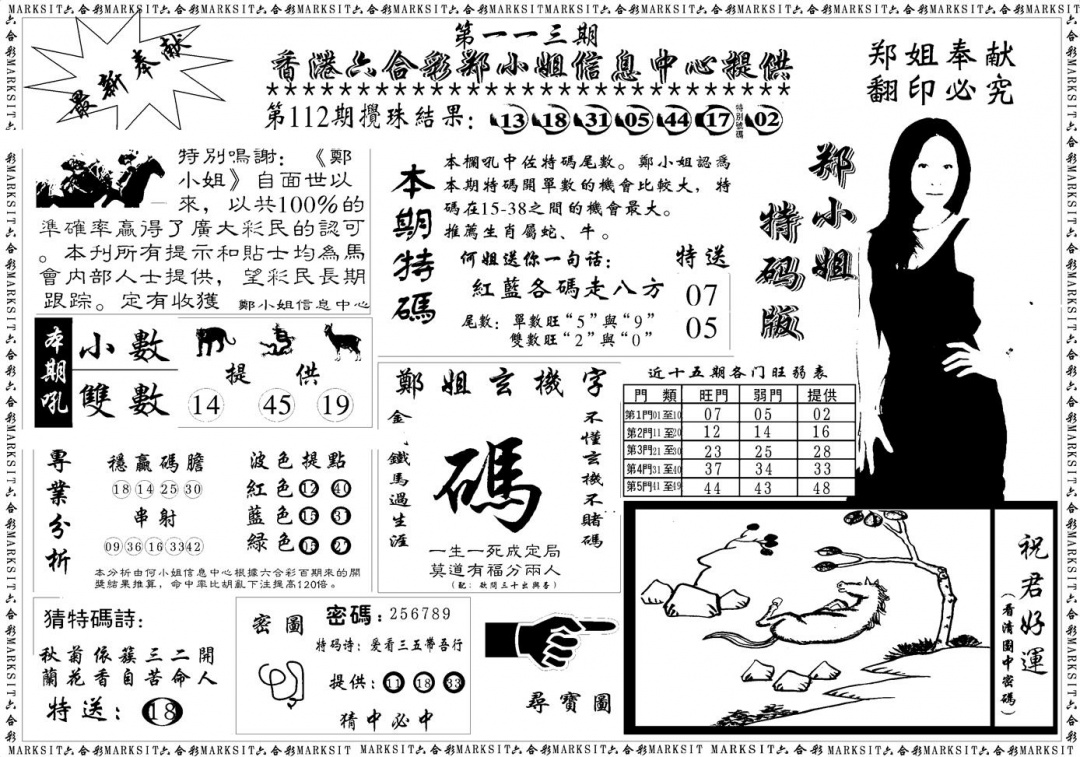 MARKSIT六合彩MARKSIT六合彩MARKSIT六合彩MARKSIT六合彩MARKSIT六合彩MARKSIT六合彩MARKSIT六合彩MARKSIT六合彩MARKSIT六合彩MARKSIT
最新奉献
第一一三期
香港六合彩郑小姐信息中心提供
★★★★★★★★★★★★★★★★★★★★★★★★★★★★★★
第112期攪珠結果: 13 18 31 05 44 17 特別號碼 02
郑姐奉献
翻印必究
特別鳴謝: 《鄭
小姐》自面世以
來, 以共100%的
準確率贏得了廣大彩民的認可
。本刊所有提示和貼士均為馬
會内部人士提供, 望彩民長期
跟踪。定有收獲 鄭小姐信息中心
本期特碼
本欄吼中任特碼尾數。鄭小姐認為
本期特碼開單數的機會比較大, 特
碼在15-38之間的機會最大。
推薦生肖屬蛇、牛。
何姐送你一句话: 特送
紅藍各碼走八方 07
05
尾數: 單數旺“5”與“9”
雙數旺“2”與“0”
郑小姐
特码版
本期吼
小數
雙數
提供
14 45 19
鄭姐玄機字
金 鐵馬過生涯
碼
不懂玄機不賭碼
一生一死成定局
莫道有福分兩人
近十五期各门旺弱表
門類 旺門 弱門 提供
第1門01至10 07 05 02
第2門11至20 12 14 16
第3門21至30 23 25 28
第4門31至40 37 34 33
第5門41至49 44 43 48
專業分析
穩贏碼膽
18 14 25 30
串射
09 36 16 33 42
波色提點
紅色 12 40
藍色 15 31
綠色 05 27
本分析由何小姐信息中心根據六合彩百期來的開
獎結果推算, 命中率比胡亂下注提高120倍。
猜特碼詩:
秋菊依簇三二開
蘭花香自苦命人
特送: 18
密圖
密碼: 256789
特码诗: 爱看三五帶吾行
提供: 11 18 33
猜中必中
尋寶圖
祝君好運
(看清圖中密碼)
MARKSIT六合彩MARKSIT六合彩MARKSIT六合彩MARKSIT六合彩MARKSIT MARKSIT六合彩MARKSIT MARKSIT六合彩MARKSIT六合彩MARKSIT六合彩MARKSIT